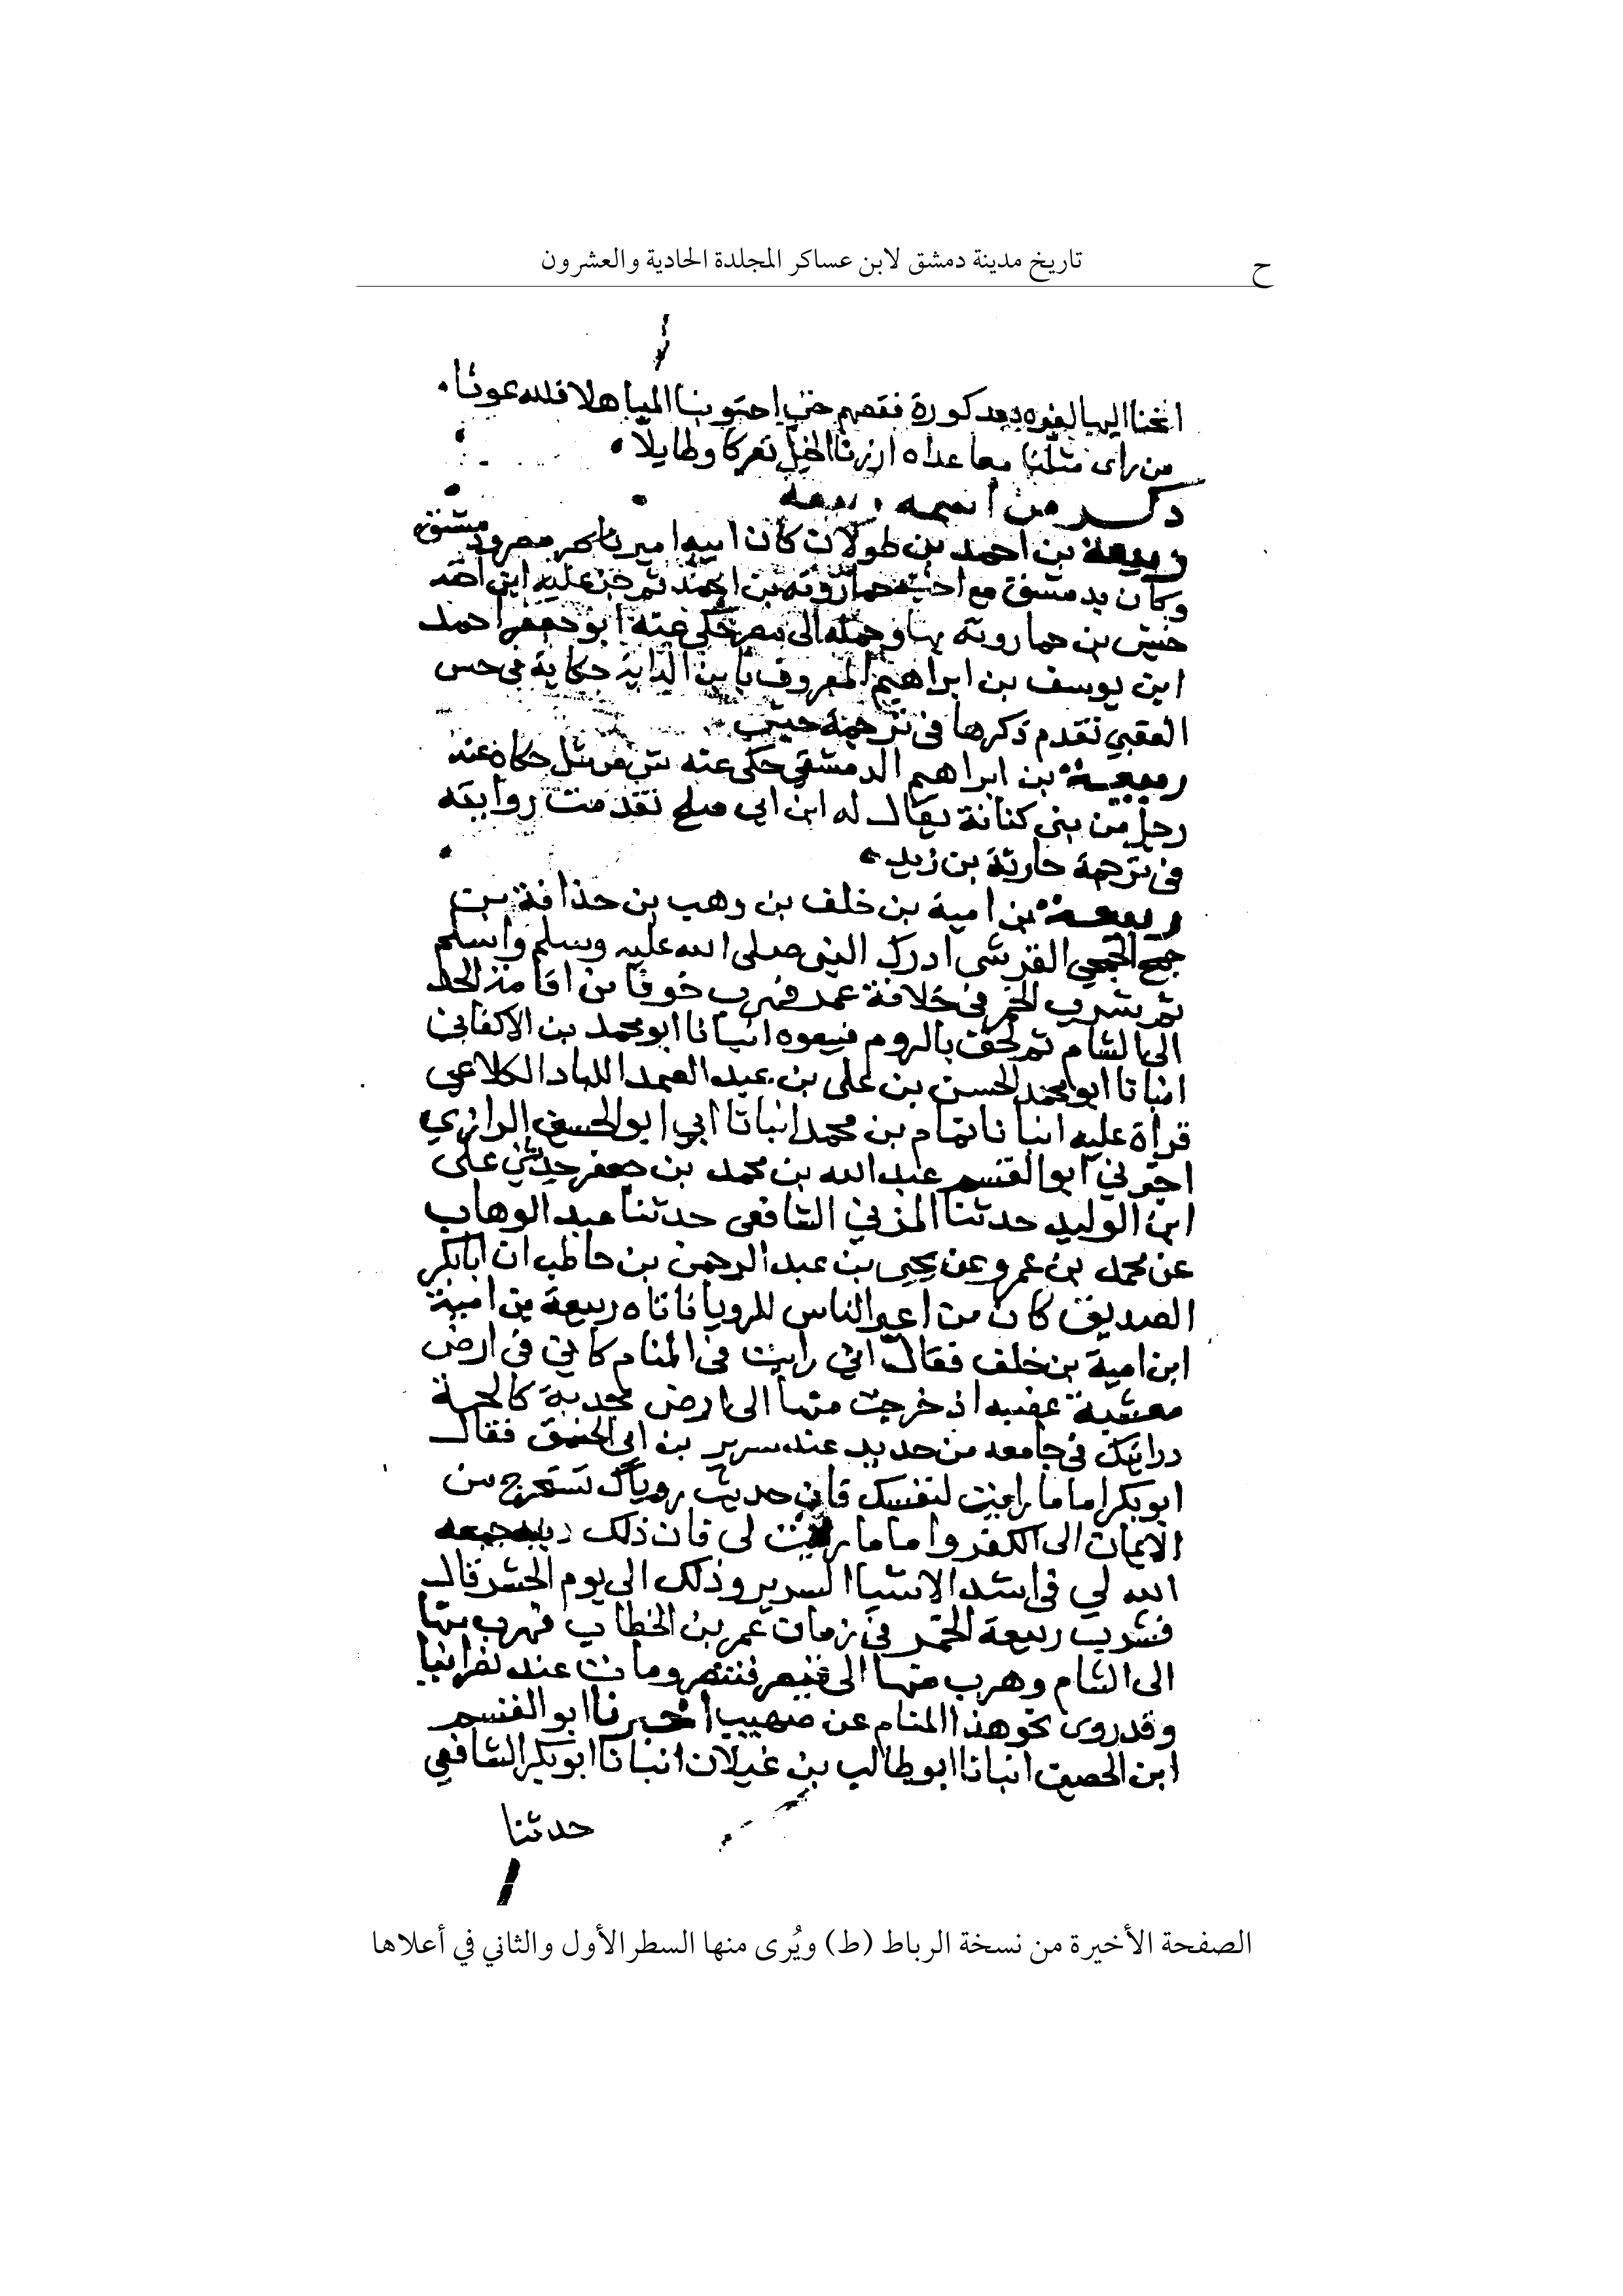 ح
تاريخ مدينة دمشق لابن عساكر المجلدة الحادية والعشرون
انخنا اليها بعد كورة فقصهم حتى احتوينا المياهلا فلله عونا
من راى مثلنا معاعداه ازرنا الخيل تعركا وطايلا
ذكر من اسمه ربيعة
ربيعة بن احمد بن طولان كان ابيه امير مصر ودمشق
وكان بدمشق مع اخيه حمارويه بن احمد ثم عليه ابن اخيه
حنش بن حمارويه بها وحمله الى مصر حكى عنه ابو جعفر احمد
ابن يوسف بن ابراهيم المعروف بابن الداية حكاية فى حس
العقبي تقدم ذكرها فى ترجمة حبيب
ربيعة بن ابراهيم الدمشقي حكى عنه حكاه عنه
رجل من بنى كنانة يقال له ابن ابى تقدمت روايته
فى ترجمة حارثة بن زيد
ربيعة بن امية بن خلف بن وهب بن حذافة بن
جمح الجمحي القرشى ادرك النبى صلى الله عليه وسلم واسلم
ثم شرب الخمر فى خلافة عمر فهرب خوفا من اقامة الحد
الى الشام ثم لحق بالروم انبانا ابو محمد بن الاكفاني
انبانا ابو محمد الحسن بن على بن عبد الصمد اللباد الكلاعي
قراة عليه انبانا تمام بن محمد انبانا ابي ابو الحسين الرازي
اخبرني ابو القسم عبد الله بن محمد بن جعفر حدثني على
ابن الوليد حدثنا المزني الشافعى حدثنا عبد الوهاب
عن محمد بن عمرو عن يحيى بن عبد الرحمن بن حاطب ان ابابكر
الصديق كان من اعبر الناس للرويا فاتاه ربيعة بن امية
ابن امية بن خلف فقال انى رايت فى المنام كاني فى ارض
معشبة اذ خرجت منها الى ارض مجدبة كالحة
ورايتك فى جامعه من حديد عند سرير بن ابي فقال
ابو بكر اما ما رايت لنفسك فان حديث روياك تستخرج من
الايمان الى الكفر واما ما رايت لى فان ذلك دينه جمعه
الله لي فى اشد الاشيا السرير وذلك الى يوم الحشر قال
فشرب ربيعة الخمر فى زمان عمر بن الخطاب فهرب منها
الى الشام وهرب منها الى قيصر فتنصر ومات عنده نصرانيا
وقد روى نحو هذا المنام عن صهيب اخبرنا ابو القسم
ابن الحصين انبانا ابو طالب بن غيلان انبانا ابو بكر الشافعي
حدثنا
الصفحة الأخيرة من نسخة الرباط (ط) ويُرى منها السطر الأول والثاني في أعلاها